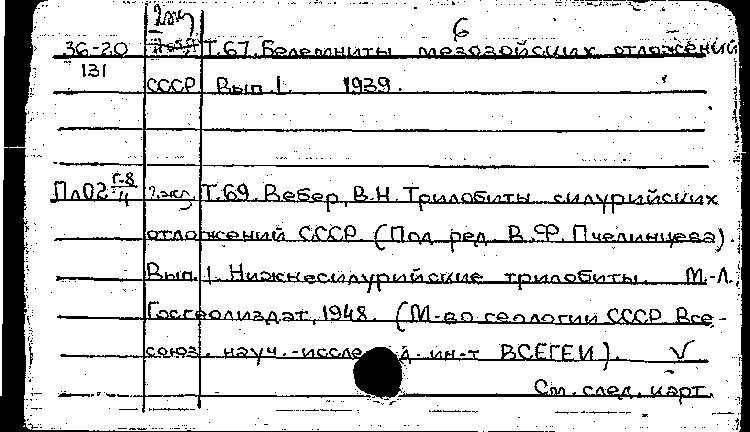 2экз 6
36-20 Т.67. Белемниты мезозойских отложений
131
СССР Вып. 1. 1939.
Пл02 г-8/4 2экз. Т.69. Вебер, В.Н. Трилобиты силурийских
отложений СССР. (Под ред. В.Ф. Пчелинцева).
Вып. 1. Нижнесилурийские трилобиты. М-Л.
Госгеолиздат, 1948. (М-во геологии СССР. Все-
союз. науч.-исслед. ин-т ВСЕГЕИ). V
См. след. карт.